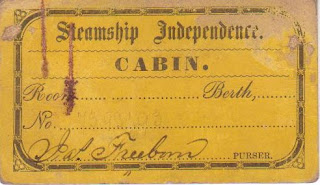 Steamship Independence.
CABIN.
Room Berth,
No.
Freeborn PURSER.